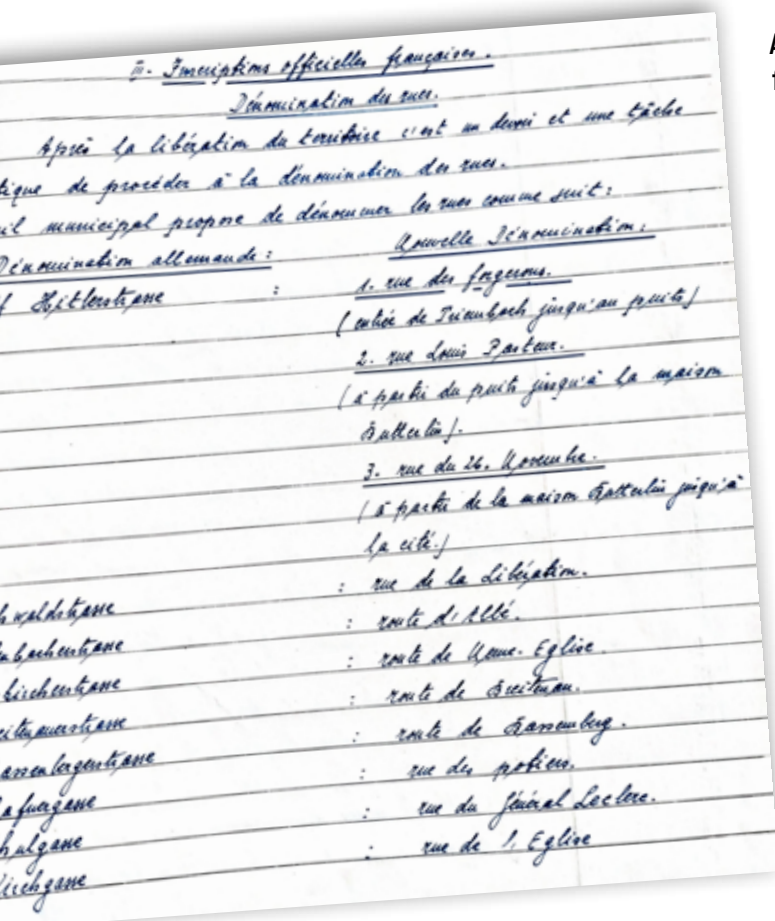 II. Inscriptions officielles françaises.
Dénomination des rues.
Après la libération du territoire c'est un devoir et une tâche
tique de procéder à la dénomination des rues.
il municipal propose de dénommer les rues comme suit:
Dénomination allemande: Nouvelle Dénomination:
f Hitlerstrasse : 1. rue des forgerons.
(entrée de Triembach jusqu'au puits)
2. rue Louis Pasteur.
(à partir du puits jusqu'à la maison
Butterlin).
3. rue du 26. Novembre.
(à partir de la maison jusqu'à
la cité.)
hwaldstrasse : rue de la Libération.
nbacherstrasse : route d'Albé.
kircherstrasse : route de Neuve-Eglise.
eitenauerstrasse : route de Breitenau.
assenbergerstrasse : route de Bassemberg.
afnergasse : rue des potiers.
hulgasse : rue du Général Leclerc.
irchgasse : rue de l'Eglise